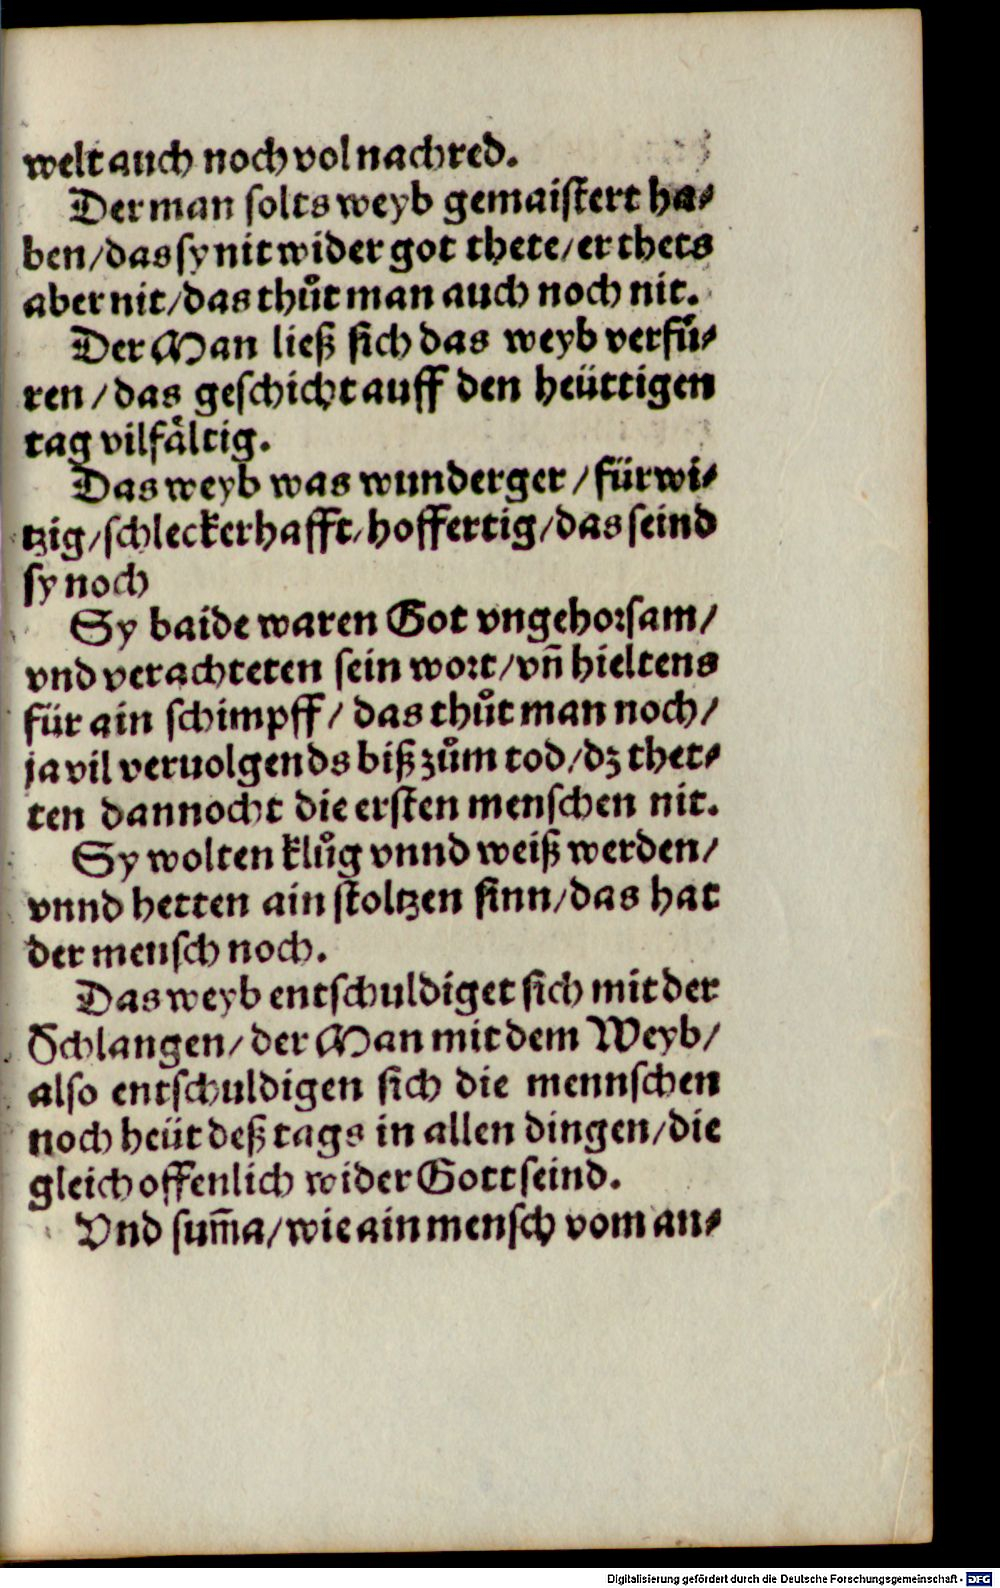 welt auch noch vol nachred.
Der man solts weyb gemaistert ha⸗
ben/das sy nit wider got thete/er thets
aber nit/das thůt man auch noch nit.
Der Man ließ sich das weyb verfü⸗
ren/das geschicht auff den heüttigen
tag vilfältig.
Das weyb was wunderger/fürwi⸗
tzig/schleckerhafft/hoffertig/das seind
sy noch
Sy baide waren Got vngehorsam/
vnd verachteten sein wort/vn̄ hieltens
für ain schimpff/das thůt man noch/
ja vil veruolgends biß zům tod/dz thet⸗
ten dannocht die ersten menschen nit.
Sy wolten klůg vnnd weiß werden/
vnnd hetten ain stoltzen sinn/das hat
der mensch noch.
Das weyb entschuldiget sich mit der
Schlangen/der Man mit dem Weyb/
also entschuldigen sich die mennschen
noch heüt deß tags in allen dingen/die
gleich offenlich wider Gott seind.
Vnd sum̄a/wie ain mensch vom an⸗
Digitalisierung gefördert durch die Deutsche Forschungsgemeinschaft - DFG